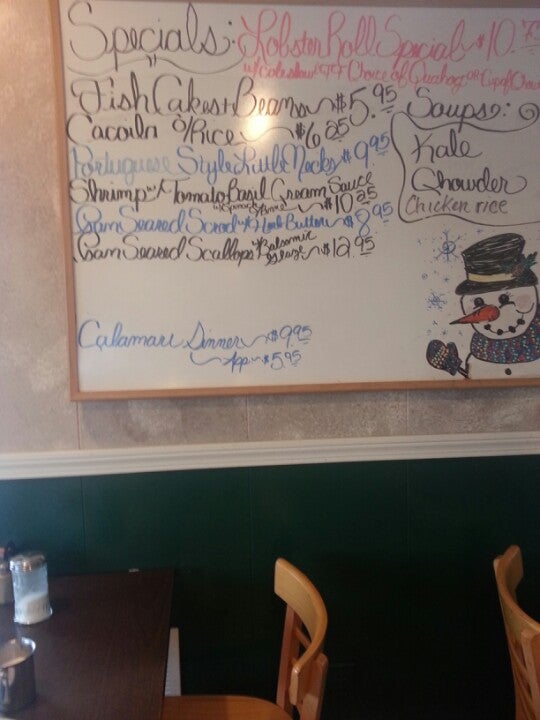 Specials: Lobster Roll Special ~ $10.
w/ Coleslaw Choice of Quahog or Cup of Chow
Fish Cakes + Beans ~ $5.95
Cacoila o/Rice ~ $6.25
Portuguese Style Little Necks $9.95
Shrimp w/ Tomato Basil Cream Sauce
~ $10.25
Pan Seared Scrod w/ Herb Butter ~ $8.95
Pan Seared Scallops w/ Balsamic
Glaze ~ $12.95
Calamari Dinner ~ $9.95
App ~ $5.95
Soups:
Kale
Chowder
Chicken rice